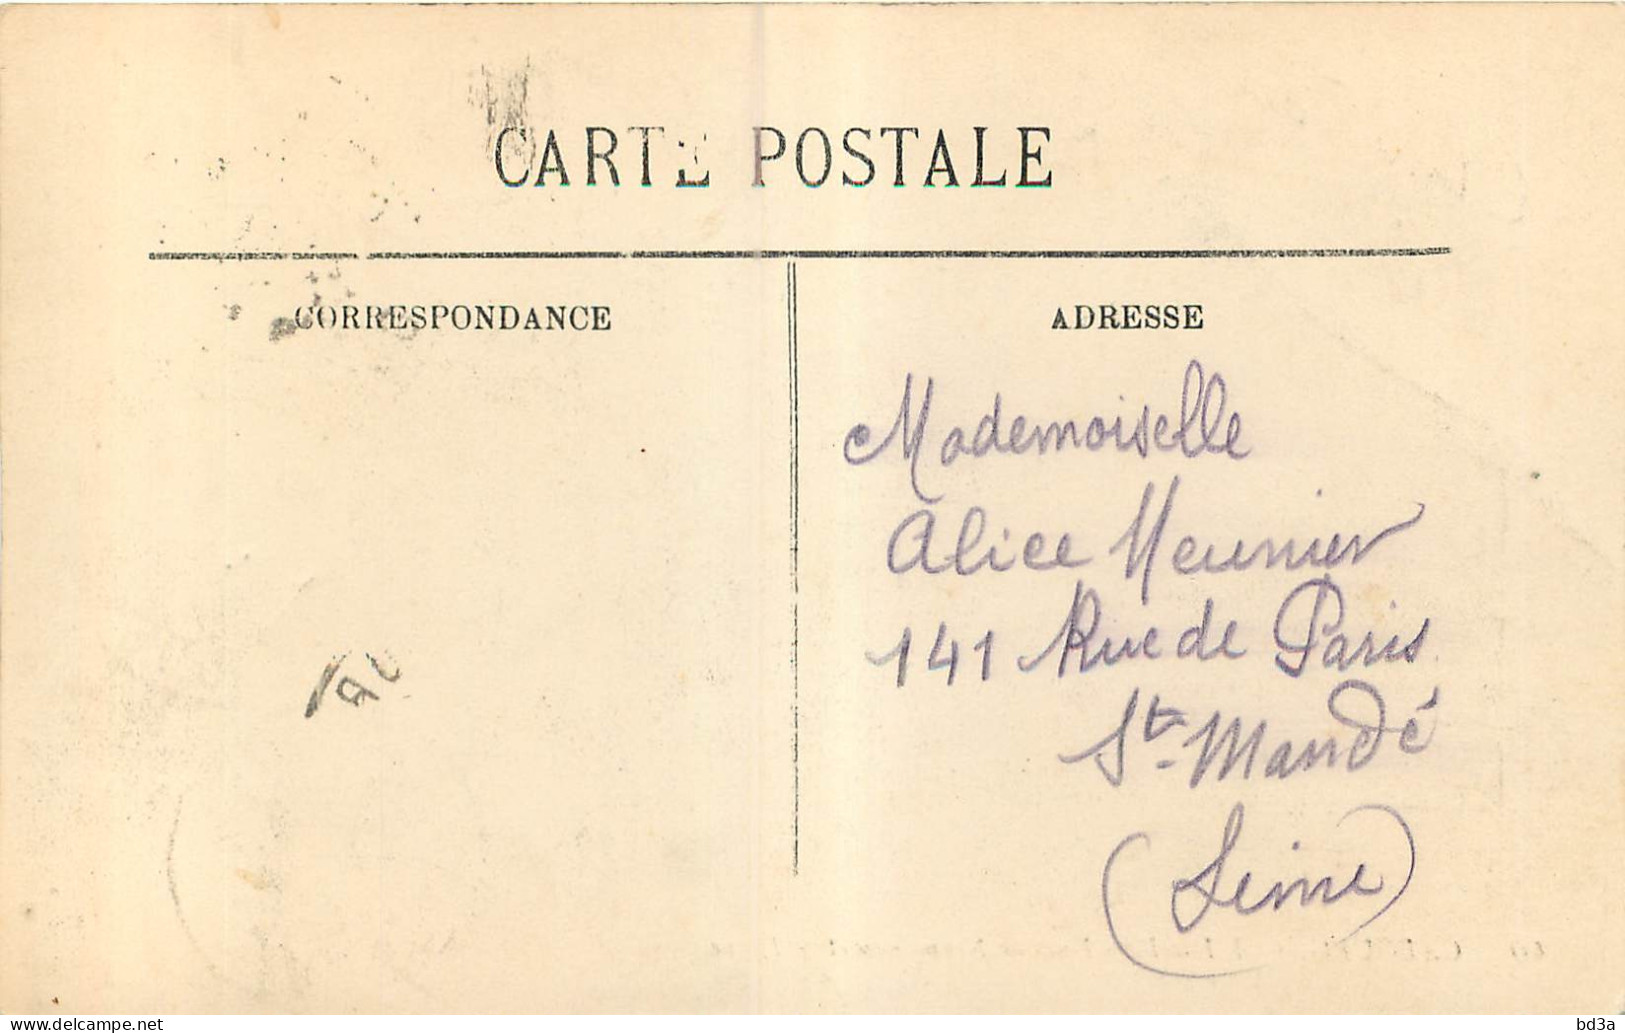 CARTE POSTALE
CORRESPONDANCE
ADRESSE
Mademoiselle
Alice Meunier
141 Rue de Paris
St-Mandé
(Seine)
delcampe.net
bd3a